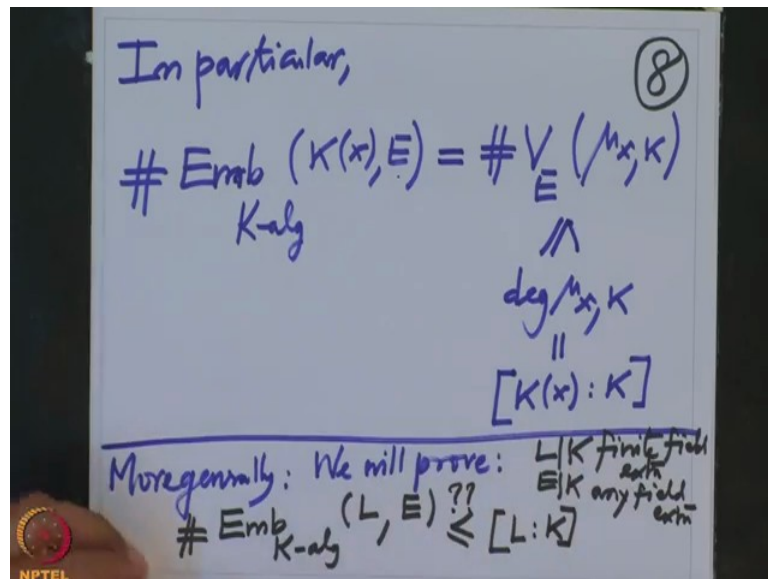 In particular,
8
# Emb (K(x), E) = # V (μx, K)
K-alg E
≤
deg μx, K
=
[K(x) : K]
More generally: We will prove: L|K finite field extn
E|K any field extn
# Emb K-alg (L, E) ≤?? [L : K]
NPTEL